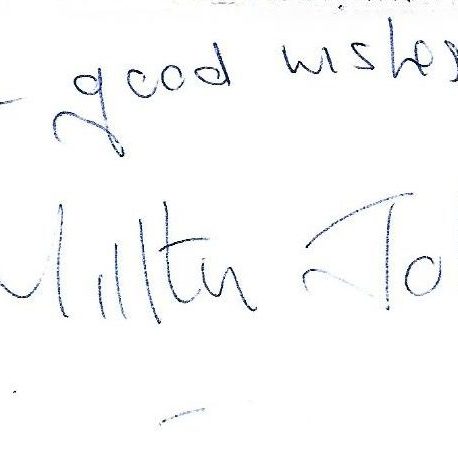 good wishes
Milton Jo